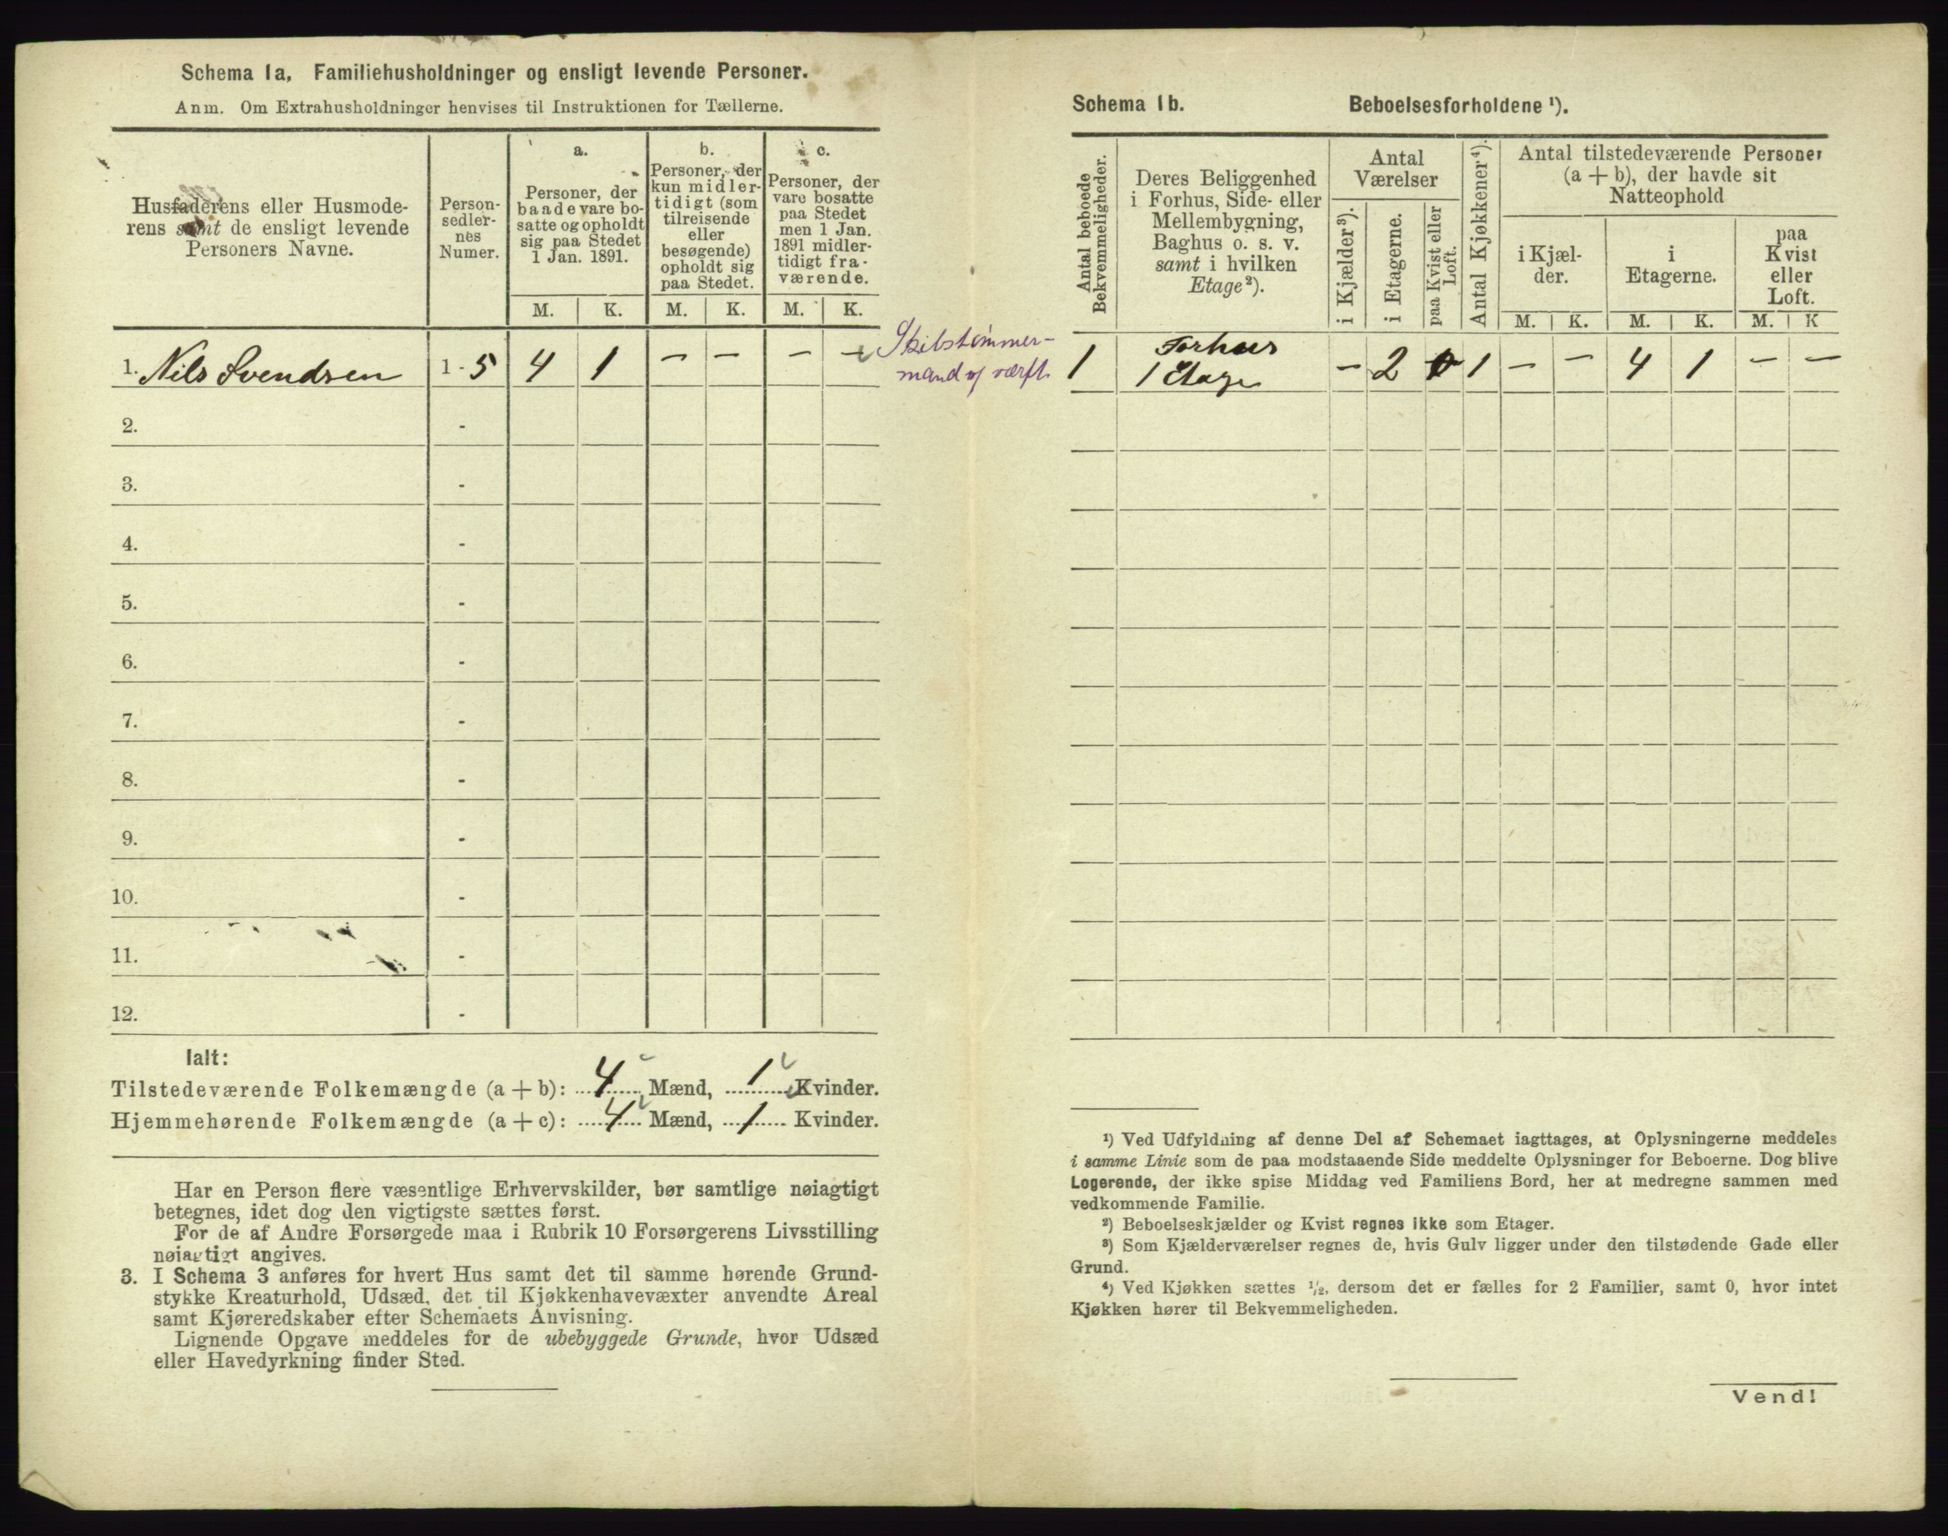 Schema 1a, Familiehusholdninger og ensligt levende Personer.
Anm. Om Extrahusholdninger henvises til Instruktionen for Tællerne.
Husfaderens eller Husmode-
rens samt de ensligt levende
Personers Navne.
Person-
sedler-
nes
Numer.
a.
Personer, der
baade vare bo-
satte og opholdt
sig paa Stedet
1 Jan. 1891.
b.
Personer, der
kun midler-
tidigt (som
tilreisende
eller
besøgende)
opholdt sig
paa Stedet.
c.
Personer, der
vare bosatte
paa Stedet
men 1 Jan.
1891 midler-
tidigt fra-
værende.
M. K. M. K. M. K.
1. Nils Svendsen 1 - 5 4 1 — — — —
Skibstømmer-
mand v/ værft.
2. -
3. -
4. -
5. -
6. -
7. -
8. -
9. -
10. -
11. -
12. -
Ialt:
Tilstedeværende Folkemængde (a + b): 4 Mænd, 1 Kvinder.
Hjemmehørende Folkemængde (a + c): 4 Mænd, 1 Kvinder.
Har en Person flere væsentlige Erhvervskilder, bør samtlige nøiagtigt
betegnes, idet dog den vigtigste sættes først.
For de af Andre Forsørgede maa i Rubrik 10 Forsørgerens Livsstilling
nøiagtigt angives.
3. I Schema 3 anføres for hvert Hus samt det til samme hørende Grund-
stykke Kreaturhold, Udsæd, det til Kjøkkenhavevæxter anvendte Areal
samt Kjøreredskaber efter Schemaets Anvisning.
Lignende Opgave meddeles for de ubebyggede Grunde, hvor Udsæd
eller Havedyrkning finder Sted.
Schema 1b. Beboelsesforholdene ¹).
Antal beboede
Bekvemmeligheder.
Deres Beliggenhed
i Forhus, Side- eller
Mellembygning,
Baghus o. s. v.
samt i hvilken
Etage ²).
Antal
Værelser
i Kjælder ³).
i Etagerne.
paa Kvist eller
Loft.
Antal Kjøkkener ⁴).
Antal tilstedeværende Personer
(a + b), der havde sit
Natteophold
i Kjæl-
der.
i
Etagerne.
paa
Kvist
eller
Loft.
M. K. M. K. M. K
1 Forhus
1 Etage — 2 1 — — 4 1 — —
¹) Ved Udfyldning af denne Del af Schemaet iagttages, at Oplysningerne meddeles
i samme Linie som de paa modstaaende Side meddelte Oplysninger for Beboerne. Dog blive
Logerende, der ikke spise Middag ved Familiens Bord, her at medregne sammen med
vedkommende Familie.
²) Beboelseskjælder og Kvist regnes ikke som Etager.
³) Som Kjælderværelser regnes de, hvis Gulv ligger under den tilstødende Gade eller
Grund.
⁴) Ved Kjøkken sættes ¹/₂, dersom det er fælles for 2 Familier, samt 0, hvor intet
Kjøkken hører til Bekvemmeligheden.
Vend!